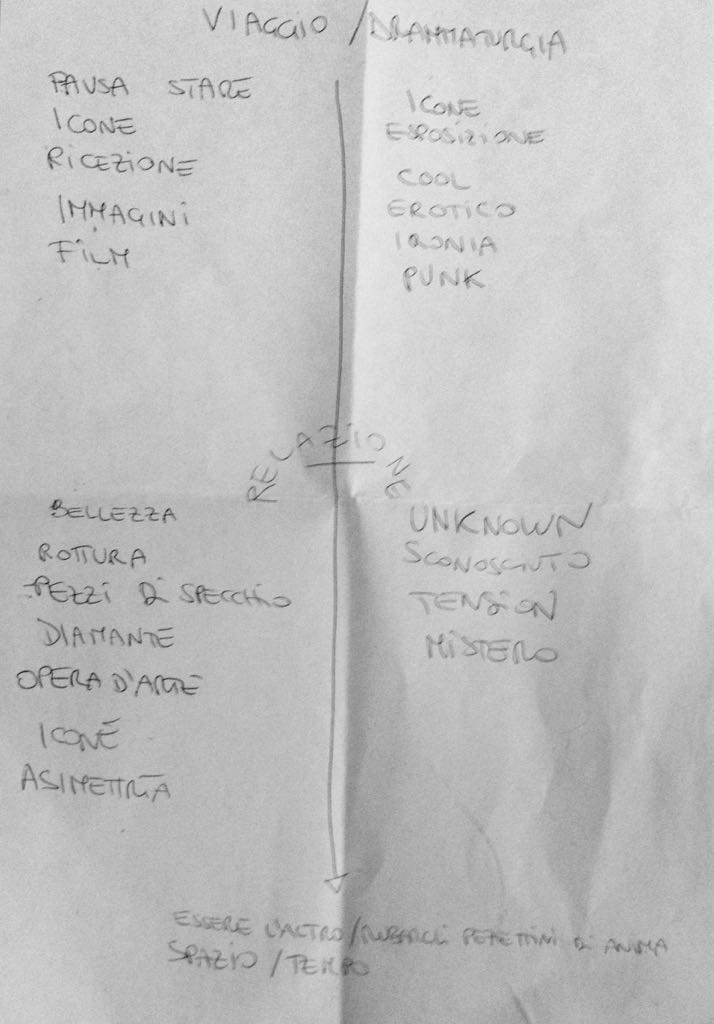 VIAGGIO / DRAMMATURGIA
PAUSA STARE
ICONE
RICEZIONE
IMMAGINI
FILM
ICONE
ESPOSIZIONE
COOL
EROTICO
IRONIA
PUNK
RELAZIONE
BELLEZZA
ROTTURA
PEZZI DI SPECCHIO
DIAMANTE
OPERA D'ARTE
ICONE
ASIMETTRIA
UNKNOWN
SCONOSCIUTO
TENSION
MISTERO
ESSERE L'ALTRO / RUBARGLI PEZZETTINI DI ANIMA
SPAZIO / TEMPO